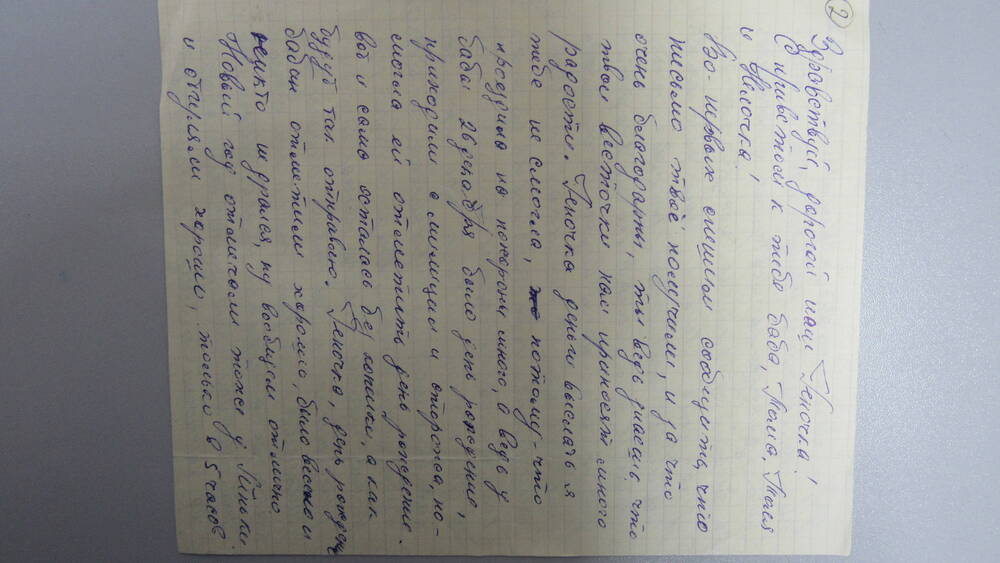 2
Здравствуй, дорогой наш Геночка!
С приветом к тебе баба, Тома, Толя
и Нелочка!
Во-первых спешим сообщить, что
письмо твоё получили, и за что
очень благодарны, ты ведь знаешь, что
твои весточки нам приносят много
радости. Геночка деньги выслать я
тебе не смогла, потому-что
проездила на похороны много, а ведь у
бабы 26 декабря было день рождение,
приходили с милиции и сторожа, по-
могла ей отметить день рождение.
вот и сама осталась без копейки, а как
будут так отправлю. Геночка, день рождение
бабин отметили хорошо, было весело и
никто не дрался, ну вообщем отлично.
Новый год отмечали тоже у
и отгуляли хорошо, только в 5 часов